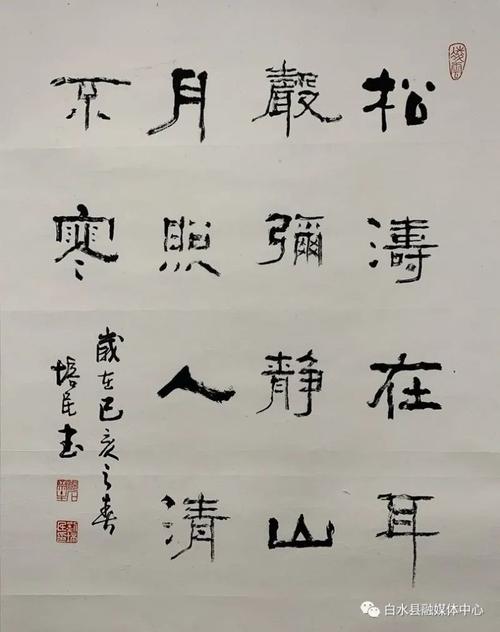 松濤在耳
聲彌靜山
月照人清
不寒
歲在己亥之春
培民書
白水县融媒体中心